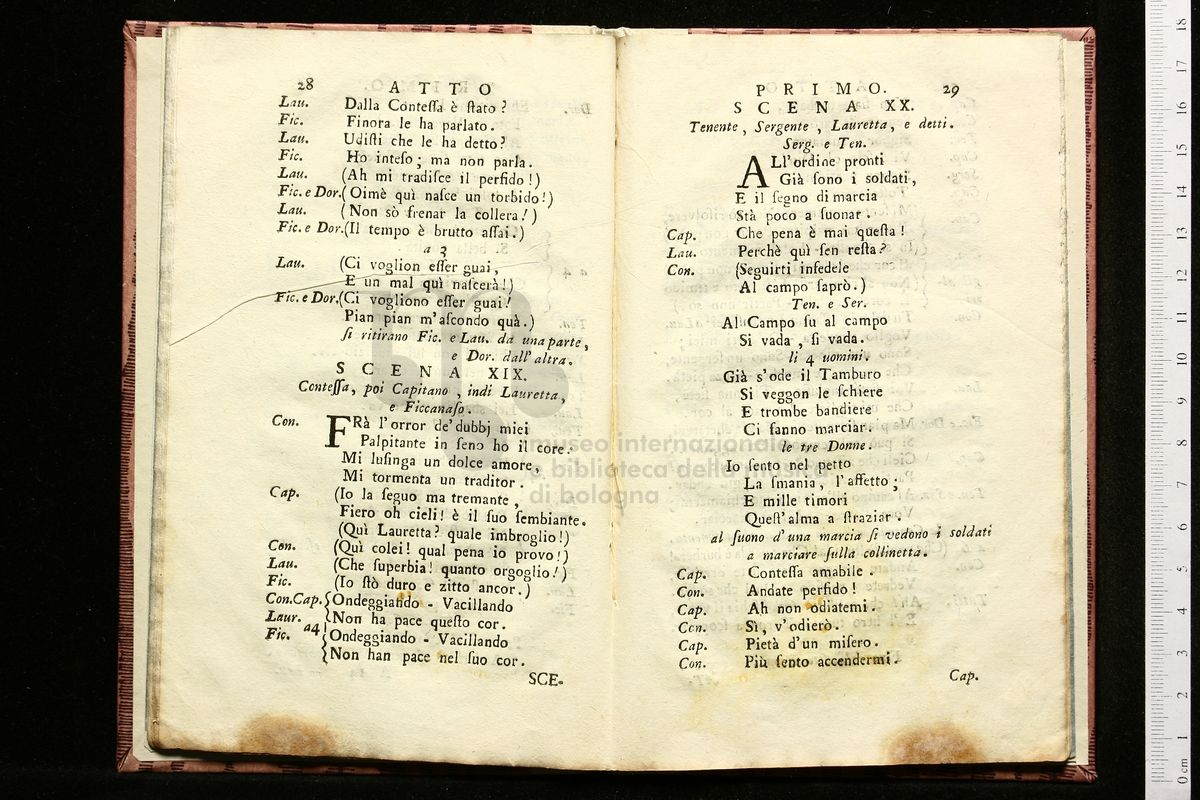 28 ATTO
Lau. Dalla Conteſſa è ſtato?
Fic. Finora le ha parlato.
Lau. Udiſti che le ha detto?
Fic. Ho inteſo; ma non parla.
Lau. (Ah mi tradiſce il perfido!)
Fic. e Dor. (Oimè quì naſce un torbido!)
Lau. (Non sò frenar la collera!)
Fic. e Dor. (Il tempo è brutto aſſai.)
a 3
Lau. (Ci voglion eſſer guai,
E un mal quì naſcerà!)
Fic. e Dor. (Ci vogliono eſſer guai!
Pian pian m'aſcondo quà.)
ſi ritirano Fic. e Lau. da una parte,
e Dor. dall'altra.
SCENA XIX.
Conteſſa, poi Capitano, indi Lauretta,
e Ficcanaſo.
Con. FRà l'orror de'dubbj miei
Palpitante in ſeno ho il core:
Mi luſinga un dolce amore,
Mi tormenta un traditor.
Cap. (Io la ſeguo ma tremante,
Fiero oh cieli! è il ſuo ſembiante.
(Quì Lauretta? quale imbroglio!)
Con. (Quì colei! qual pena io provo!)
Lau. (Che ſuperbia! quanto orgoglio!)
Fic. (Io ſtò duro e zitto ancor.)
Con. Cap. {Ondeggiando - Vacillando
Laur. {Non ha pace queſto cor.
Fic. a4 {Ondeggiando - Vacillando
{Non han pace nel ſuo cor.
SCE-
PRIMO. 29
SCENA XX.
Tenente, Sergente, Lauretta, e detti.
Serg. e Ten.
ALl'ordine pronti
Già ſono i soldati,
E il ſegno di marcia
Stà poco a ſuonar.
Cap. Che pena è mai queſta!
Lau. Perchè quì ſen reſta?
Con. (Seguirti infedele
Al campo ſaprò.)
Ten. e Ser.
Al Campo ſu al campo
Si vada, ſi vada.
li 4 uomini.
Già s'ode il Tamburo
Si veggon le ſchiere
E trombe bandiere
Ci fanno marciar.
le tre Donne.
Io ſento nel petto
La ſmania, l'affetto;
E mille timori
Queſt'alma a ſtraziar.
al ſuono d'una marcia ſi vedono i soldati
a marciare ſulla collinetta.
Cap. Conteſſa amabile.
Con. Andate perfido!
Cap. Ah non odiatemi.
Con. Sì, v'odierò.
Cap. Pietà d'un miſero.
Con. Più ſento accendermi.
Cap.
museo internazionale
e biblioteca della musica
di bologna
0 cm 1 2 3 4 5 6 7 8 9 10 11 12 13 14 15 16 17 18